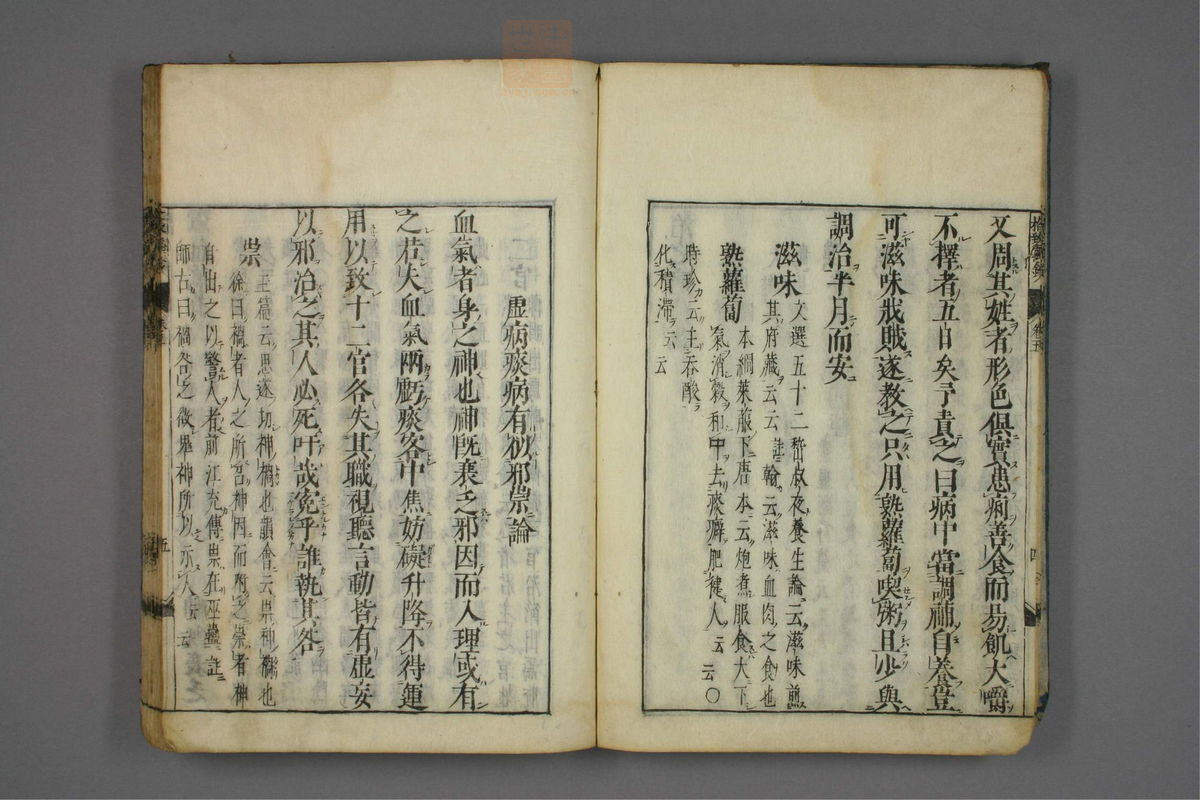 又周其姓者形色俱實患痢善食而易飢大嚼
不擇者五日矣予責之曰病中當調補自養豈
可滋味戕賊遂教之只用熟蘿蔔喫粥且少與
調治半月而安
滋味
文選五十二嵆叔夜養生論云滋味煎
其府藏云云 翰云滋味血肉之食也
熟蘿蔔
本綱萊菔下唐本云炮煮服食大下
氣消穀和中去痰癖肥健人云云○
時珍云主吞酸
化積滯云云
虛病痰病有似邪祟論
血氣者身之神也神既衰乏邪因而入理或有
之若夫血氣兩虧痰客中焦妨礙升降不得運
用以致十二官各失其職視聽言動皆有虛妄
以邪治之其人必死吁哉冤乎誰執其咎
祟
玉篇云思遂切神禍也韻會云祟神禍也
徐曰禍者人之所召神因而附之祟者神
自出之以警人者前江充傳祟在巫蠱註
師古曰禍咎之徵鬼神所以示人云云
五